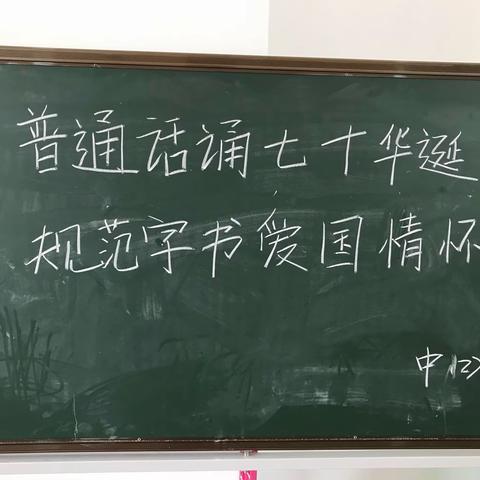 普通话诵七十华诞
规范字书爱国情怀
中